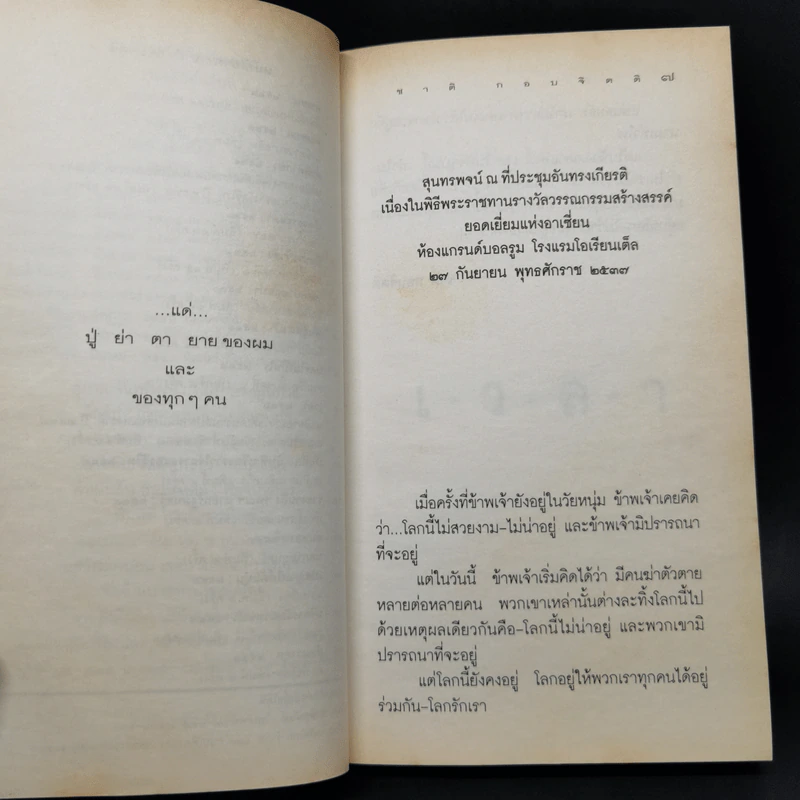 ...แด่...
ปู่ ย่า ตา ยาย ของผม
และ
ของทุกๆ คน
ชาติ กอบจิตติ ๗
สุนทรพจน์ ณ ที่ประชุมอันทรงเกียรติ
เนื่องในพิธีพระราชทานรางวัลวรรณกรรมสร้างสรรค์
ยอดเยี่ยมแห่งอาเซี่ยน
ห้องแกรนด์บอลรูม โรงแรมโอเรียนเต็ล
๒๗ กันยายน พุทธศักราช ๒๕๓๗
เมื่อครั้งที่ข้าพเจ้ายังอยู่ในวัยหนุ่ม ข้าพเจ้าเคยคิด
ว่า...โลกนี้ไม่สวยงาม-ไม่น่าอยู่ และข้าพเจ้ามิปรารถนา
ที่จะอยู่
แต่ในวันนี้ ข้าพเจ้าเริ่มคิดได้ว่า มีคนฆ่าตัวตาย
หลายต่อหลายคน พวกเขาเหล่านั้นต่างละทิ้งโลกนี้ไป
ด้วยเหตุผลเดียวกันคือ-โลกนี้ไม่น่าอยู่ และพวกเขามิ
ปรารถนาที่จะอยู่
แต่โลกนี้ยังคงอยู่ โลกอยู่ให้พวกเราทุกคนได้อยู่
ร่วมกัน-โลกรักเรา